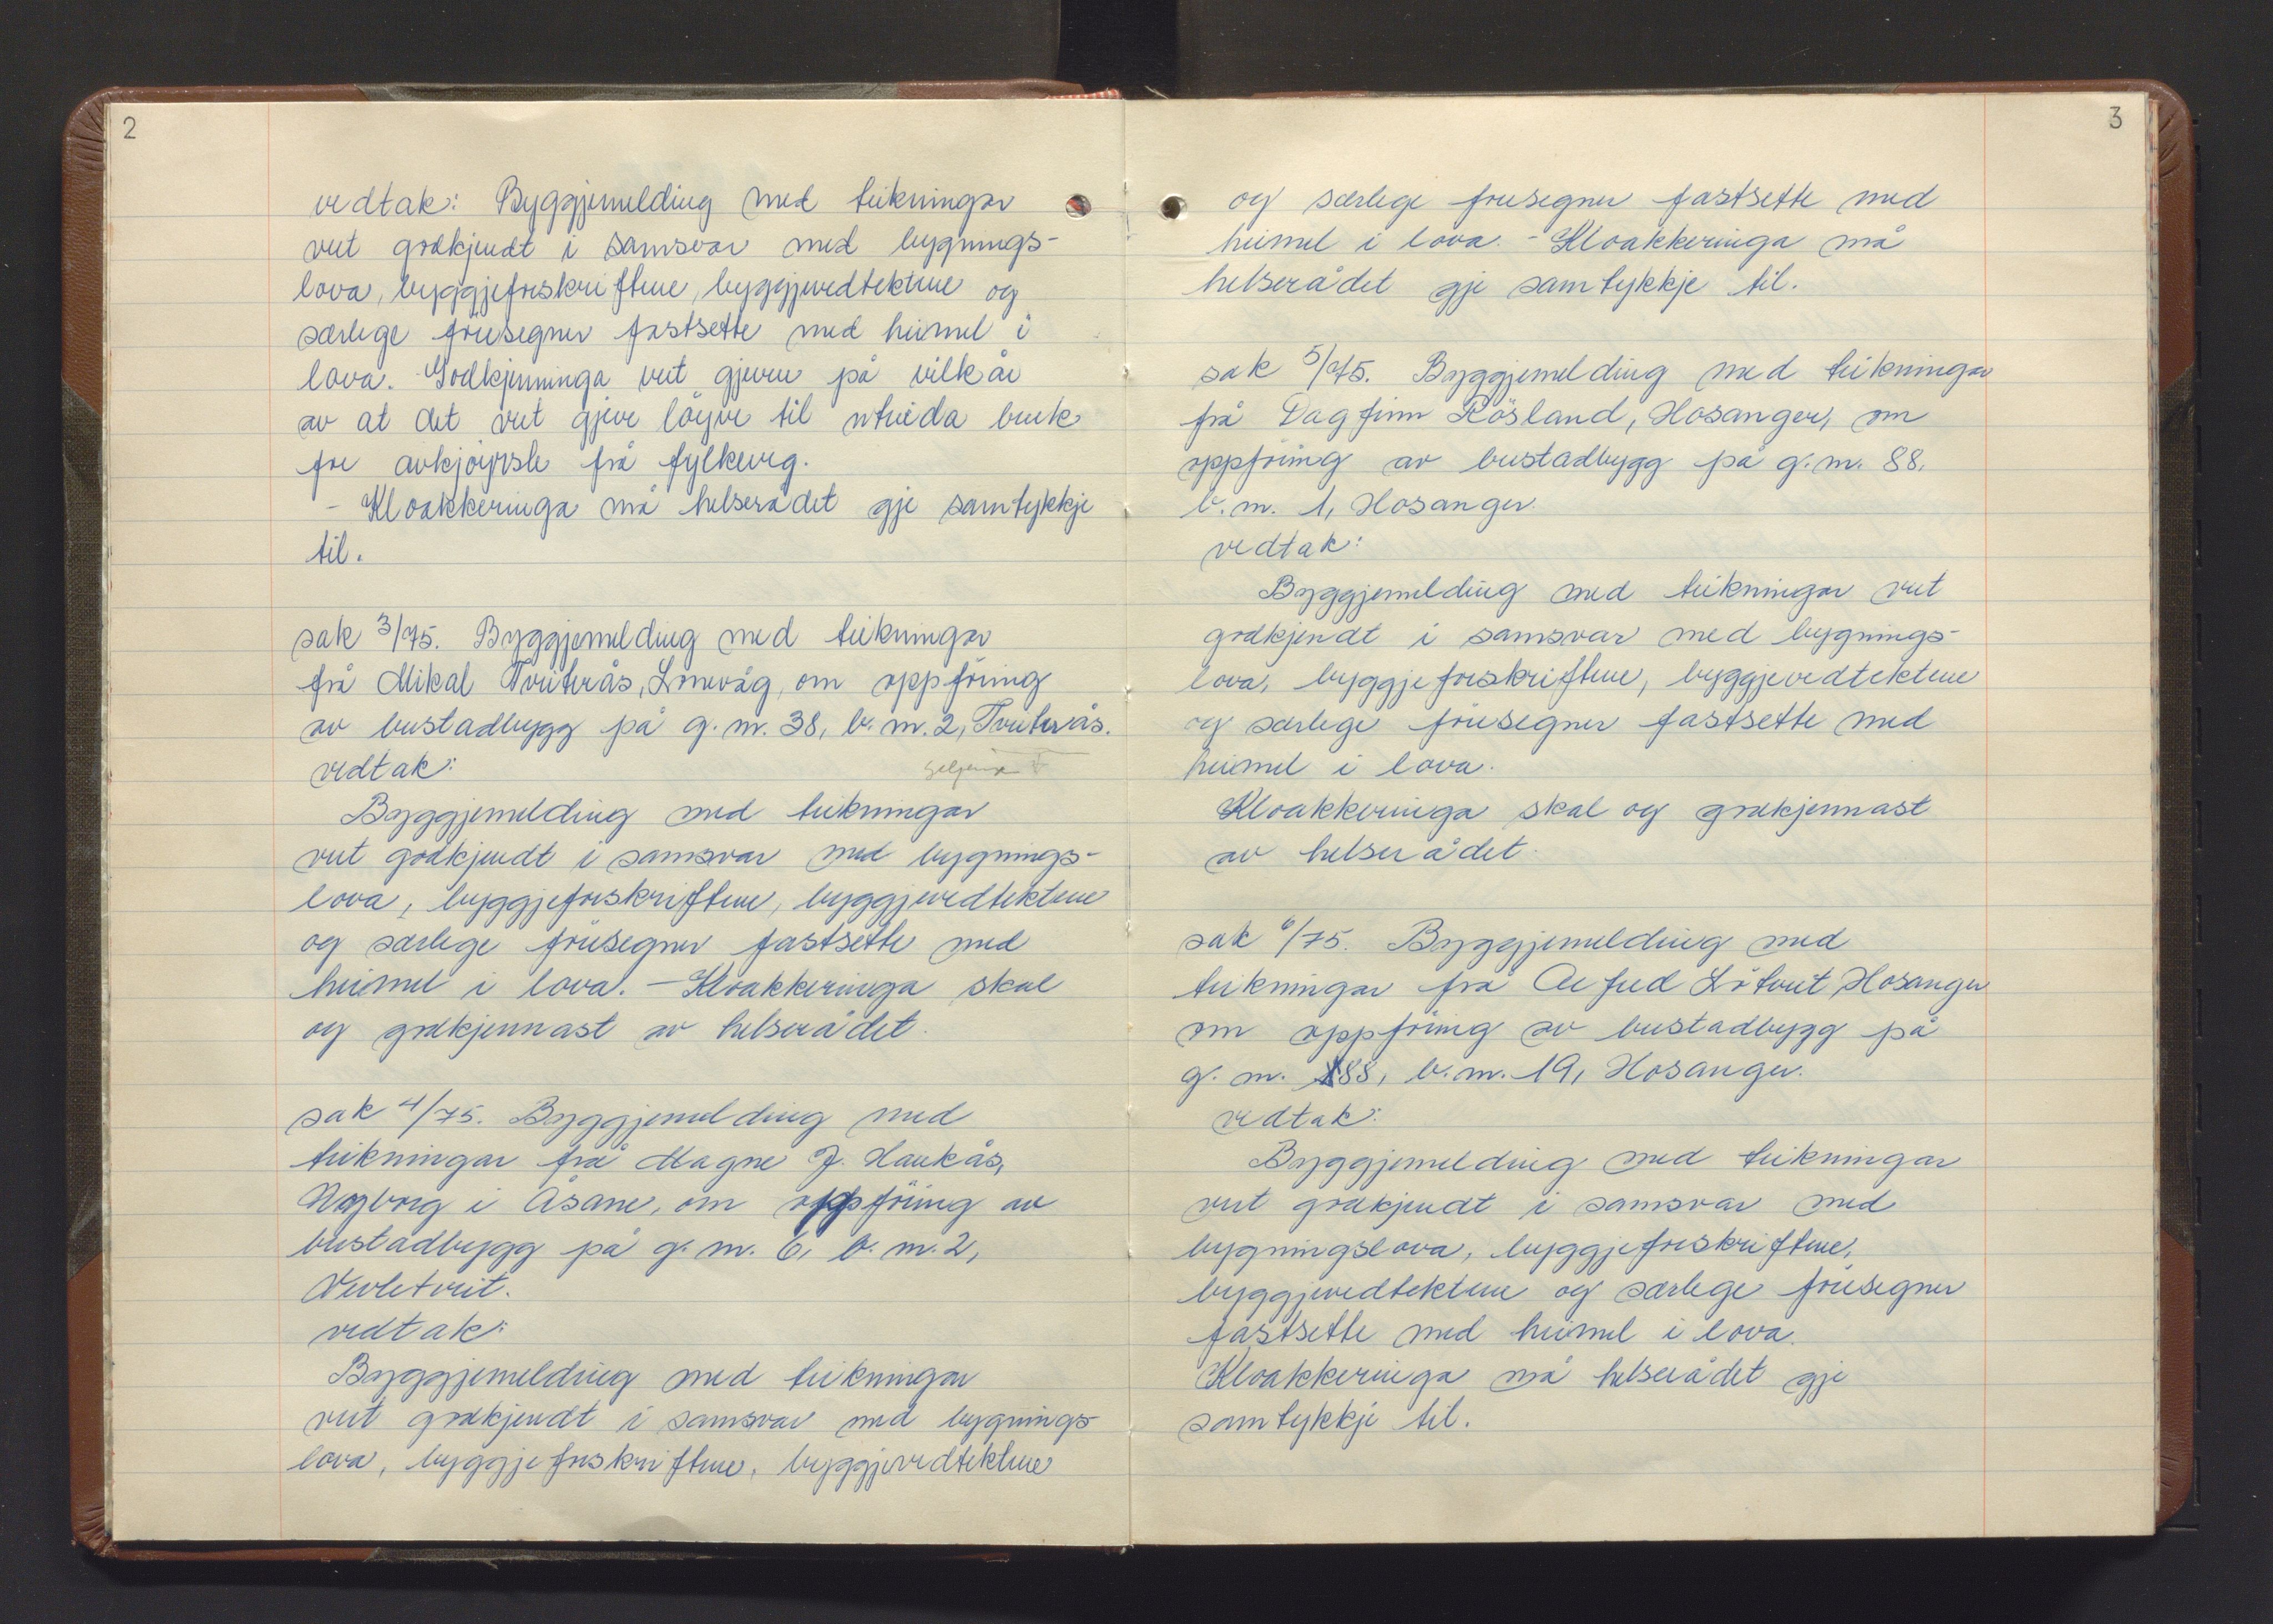 2
vedtak: Byggjemelding med teikningar
vert godkjendt i samsvar med bygnings-
lova, byggjeforskriftene, byggjevedtektene og
særlege föresegner fastsette med heimel i
lova. Godkjenninga vert gjeven på vilkår
av at det vert gjeve löyve til utvida bruk
for avkjøyrsle frå fylkesveg.
- Kloakkeringa må helserådet gje samtykkje
til.
sak 3/75. Byggjemelding med teikningar
frå Mikal Tveiterås, Lonevåg, om oppföring
av bustadbygg på g. nr. 38, b. nr. 2, Tveiterås.
vedtak:
Byggjemelding med teikningar
vert godkjendt i samsvar med bygnings-
lova, byggjeforskriftene, byggjevedtektene
og særlege föresegner fastsette med
heimel i lova. - Kloakkeringa skal
og godkjennast av helserådet.
sak 4/75. Byggjemelding med
teikningar frå Magne J. Haukås,
Nyborg i Åsane, om oppföring av
bustadbygg på g. nr. 6, b. nr. 2,
Vevletveit.
vedtak:
Byggjemelding med teikningar
vert godkjendt i samsvar med bygnings-
lova, byggjeforskriftene, byggjevedtektene
3
og særlege föresegner fastsette med
heimel i lova. - Kloakkeringa må
helserådet gje samtykkje til.
sak 5/75. Byggjemelding med teikningar
frå Dagfinn Rösland, Hosanger, om
oppföring av bustadbygg på g. nr. 88,
b. nr. 1, Hosanger.
vedtak:
Byggjemelding med teikningar vert
godkjendt i samsvar med bygnings-
lova, byggjeforskriftene, byggjevedtektene
og særlege föresegner fastsette med
heimel i lova.
Kloakkeringa skal og godkjennast
av helserådet.
sak 6/75. Byggjemelding med
teikningar frå Alfred Lötveit Hosanger
om oppföring av bustadbygg på
g. nr. 88, b. nr. 19, Hosanger.
vedtak:
Byggjemelding med teikningar
vert godkjendt i samsvar med
bygningslova, byggjeforskriftene,
byggjevedtektene og særlege föresegner
fastsette med heimel i lova.
Kloakkeringa må helserådet gje
samtykkje til.